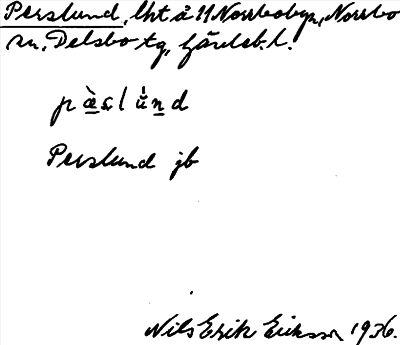 Perslund, lht å 11 Norrbobyn, Norrbo
sn, Delsbo tg, Gävleb. l.
pæ̀slúnd
Perslund jb
Nils Erik Eriksson 1936.